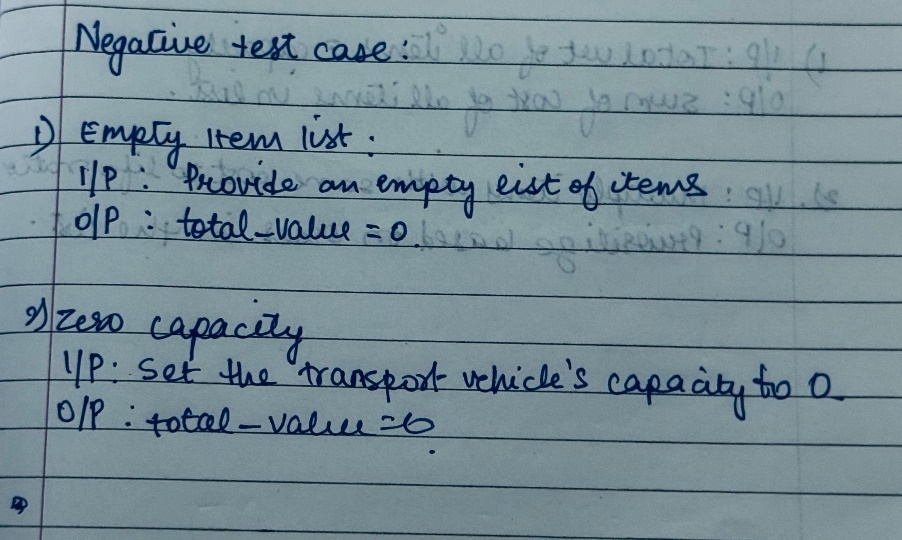 Negative test case:
1) Empty Item list.
I/P : Provide an empty list of items
O/P : total_value = 0.
2) Zero capacity
I/P: Set the transport vehicle's capacity to 0
O/P : total_value = 0.